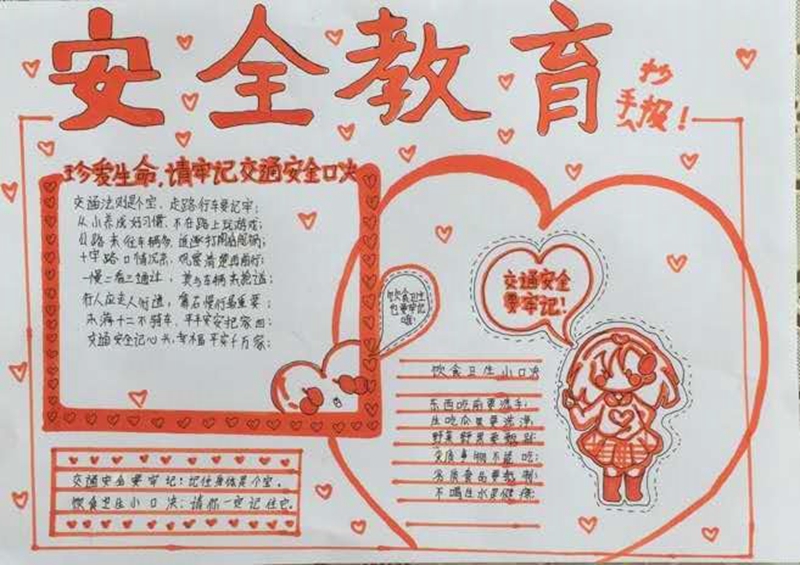 安全教育
手抄报！
珍爱生命，请牢记交通安全口决
交通法则是个宝，走路行车要记牢；
从小养成好习惯，不在路上玩游戏；
公路来往车辆多，追逐打闹
十字路口情况杂，观察清楚再前行；
一慢二看三通过，莫与车辆来抢道；
行人应走人行道，靠右慢行最重要；
未满十二不骑车，平平安安把家回；
交通安全记心头，幸福平安千万家；
饮食卫生
也要牢记
哦！
交通安全
要牢记！
饮食卫生小口决
东西吃前要洗手；
生吃瓜果要洗净；
野菜野果要
变质
劣质食品要
不喝生水是健康；
交通安全要牢记：记住身体是个宝。
饮食卫生小口决：请你一定记住它。